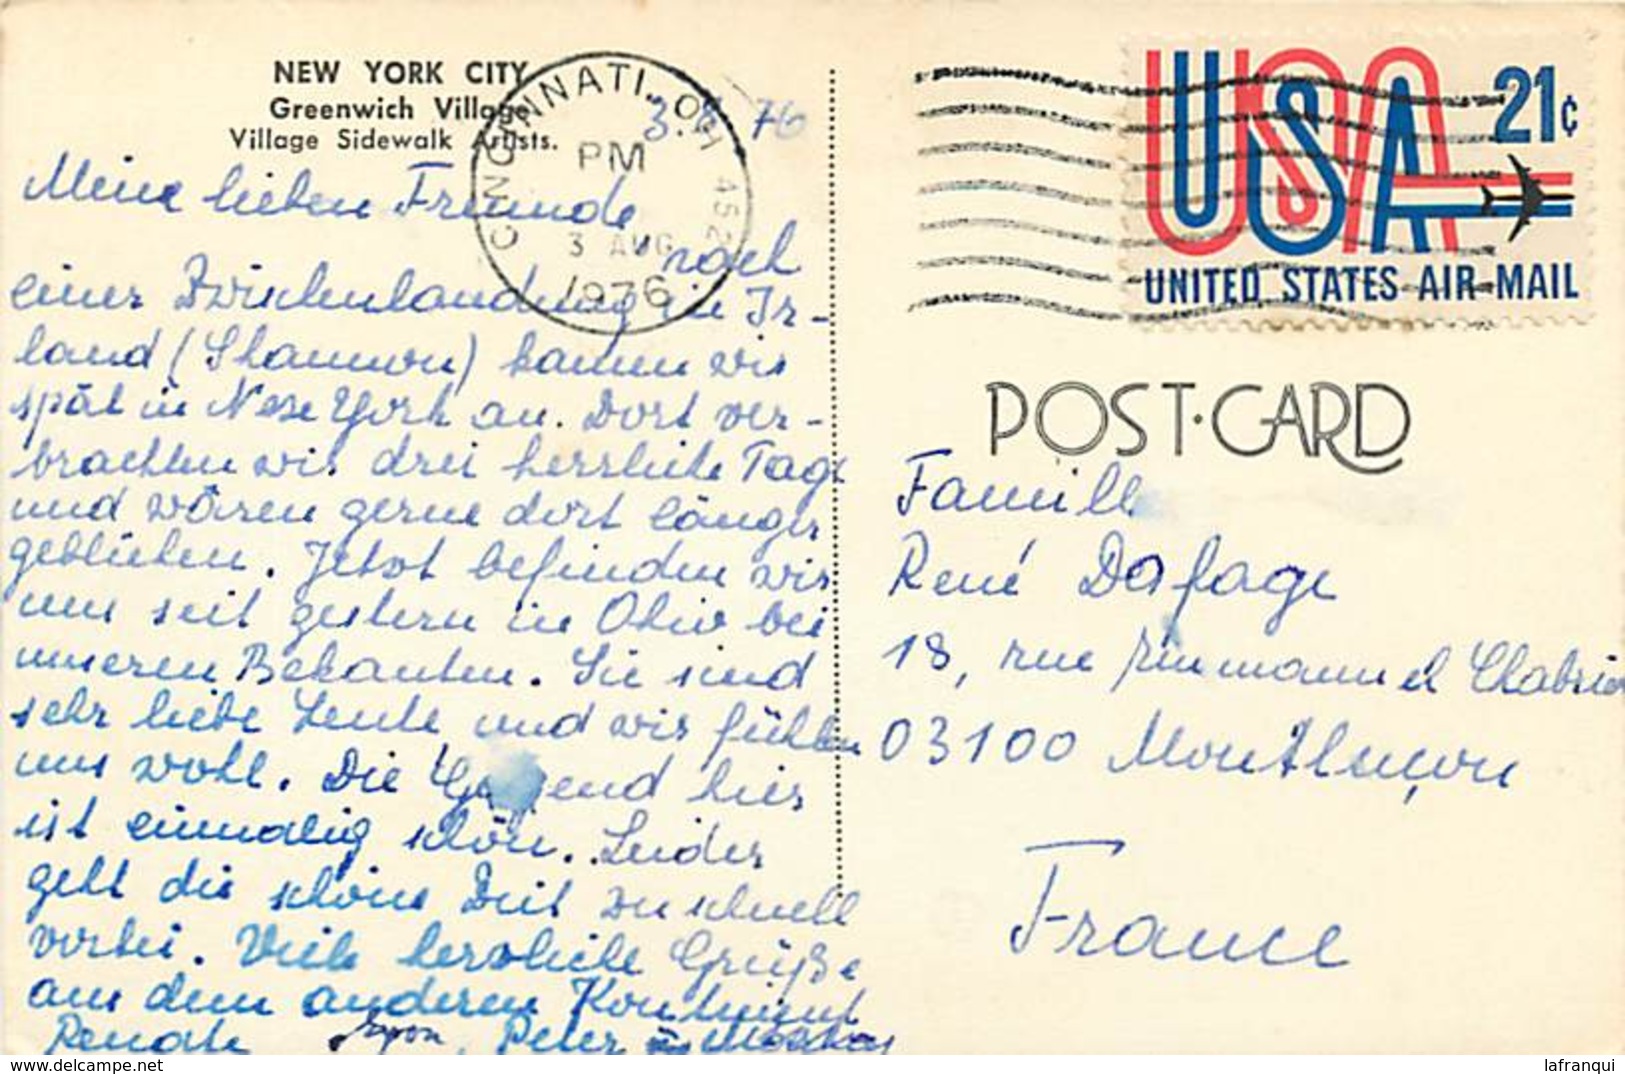 NEW YORK CITY
Greenwich Village
Village Sidewalk Artists.
CINCINNATI, OH 452
PM
3 AUG
1976
3. 8. 76
Meine lieben Freunde
nach
einer Zwischenlandung in Ir-
land (Shannon) kamen wir
spät in New York an. Dort ver-
brachten wir drei herrliche Tage
und wären gerne dort länger
geblieben. Jetzt befinden wir
uns seit gestern in Ohio bei
unseren Bekannten. Sie sind
sehr liebe Leute und wir fühlen
uns wohl. Die Gegend hier
ist einmalig schön. Leider
geht die schöne Zeit zu schnell
vorbei. Viele herzliche Grüße
aus dem anderen Kontinent
Renate, Peter
USA 21¢
UNITED STATES AIR MAIL
POST·CARD
Famille
René Dafage
18, rue Emmanuel Chabrier
03100 Montluçon
France
lafranqui